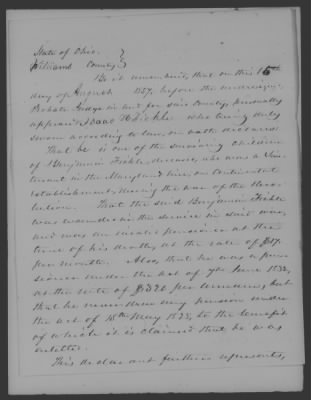 State of Ohio }
Williams County }
Be it remembered, that on this 15th
day of August 1857, before the undersigned
Probate Judge in and for said County, personally
appeared Isaac Fickle who being duly
sworn according to law, on oath declares
That he is one of the surviving children
of Benjamin Fickle deceased, who was a Lieu
tenant in the Maryland line, on Continental
establishment, during the war of the Revo
lution. That the said Benjamin Fickle
was wounded in the service in said war,
and was an invalid pensioner at the
time of his death, at the rate of $17.
per month. Also, that he was a pen
sioner under the act of 7th June 1832,
at the rate of $320 per annum, but
that he never drew any pension under
the act of 15th May 1828, to the benefit
of which it is claimed that he was
entitled.
This declarant further represents,